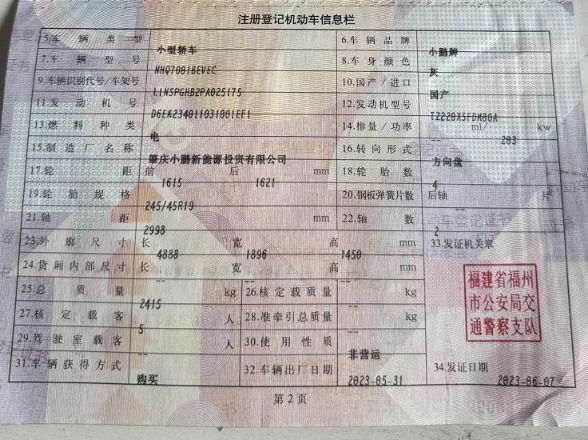 注册登记机动车信息栏
5.车辆类型 小型轿车 6.车辆品牌 小鹏牌
7.车辆型号 NHQ7001BEVEC 8.车身颜色 灰
9.车辆识别代号/车架号 L1NSPGHB2PA025175 10.国产/进口 国产
11.发动机号 D6EK234011031001EF1 12.发动机型号 TZ220XSFDM80A
13.燃料种类 电 14.排量/功率 ml/ 203 kw
15.制造厂名称 肇庆小鹏新能源投资有限公司 16.转向形式 方向盘
17.轮距 前 1615 后 1621 mm 18.轮胎数 4
19.轮胎规格 245/45R19 20.钢板弹簧片数 后轴 -- 片
21.轴距 2998 mm 22.轴数 2
23.外廓尺寸 长 4888 宽 1896 高 1450 mm 33.发证机关章
24.货厢内部尺寸 长 -- 宽 -- 高 -- mm
福建省福州
市公安局交
通警察支队
25.总质量 2415 kg 26.核定载质量 -- kg
27.核定载客 5 人 28.准牵引总质量 -- kg
29.驾驶室载客 -- 人 30.使用性质 非营运
31.车辆获得方式 购买 32.车辆出厂日期 2023-05-31 34.发证日期 2023-06-07
第2页